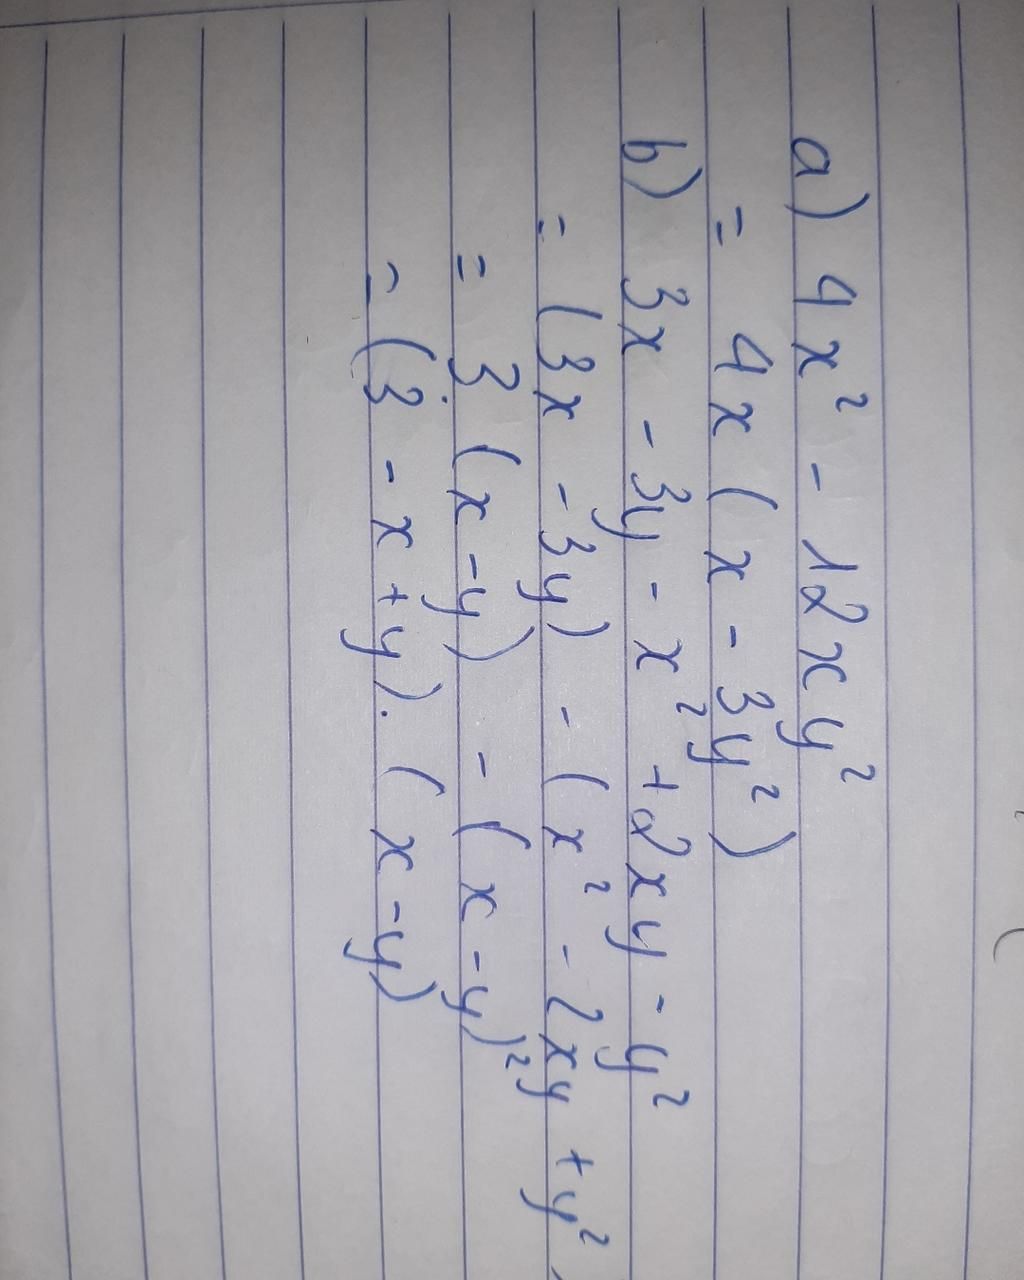 a) 4x² - 12xy²
= 4x (x - 3y²)
b) 3x - 3y - x² + 2xy - y²
= (3x - 3y) - (x² - 2xy + y²
= 3 (x - y) - (x - y)²
= (3 - x + y). (x - y)